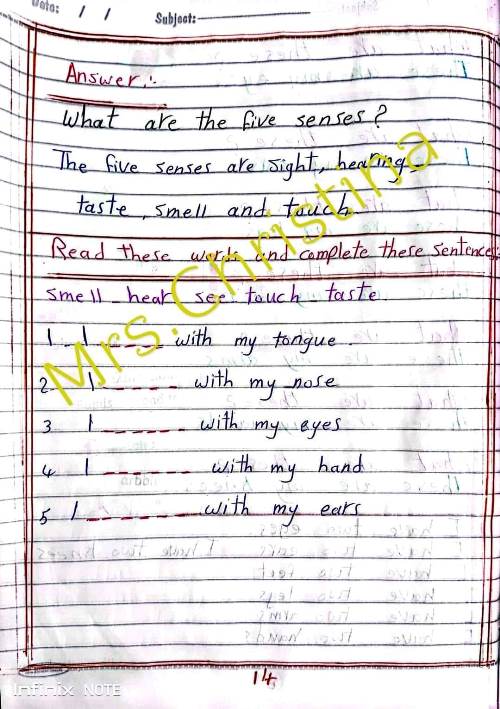 Date: / / Subject:
Answer:-
What are the five senses?
The five senses are sight, hearing
taste, smell and touch
Read these words and complete these sentences:
smell - hear see touch taste
1 I _ _ _ _ with my tongue.
2 I _ _ _ _ _ with my nose
3 I _ _ _ _ _ _ with my eyes
4 I _ _ _ _ _ _ with my hand
5 I _ _ _ _ _ _ _ with my ears
Mrs. Christina
14
Infinix NOTE